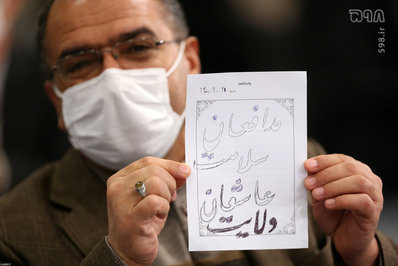 ۵۹۸
598.ir
یادداشت
مدافعان
سلامت
عاشقان
ولایت